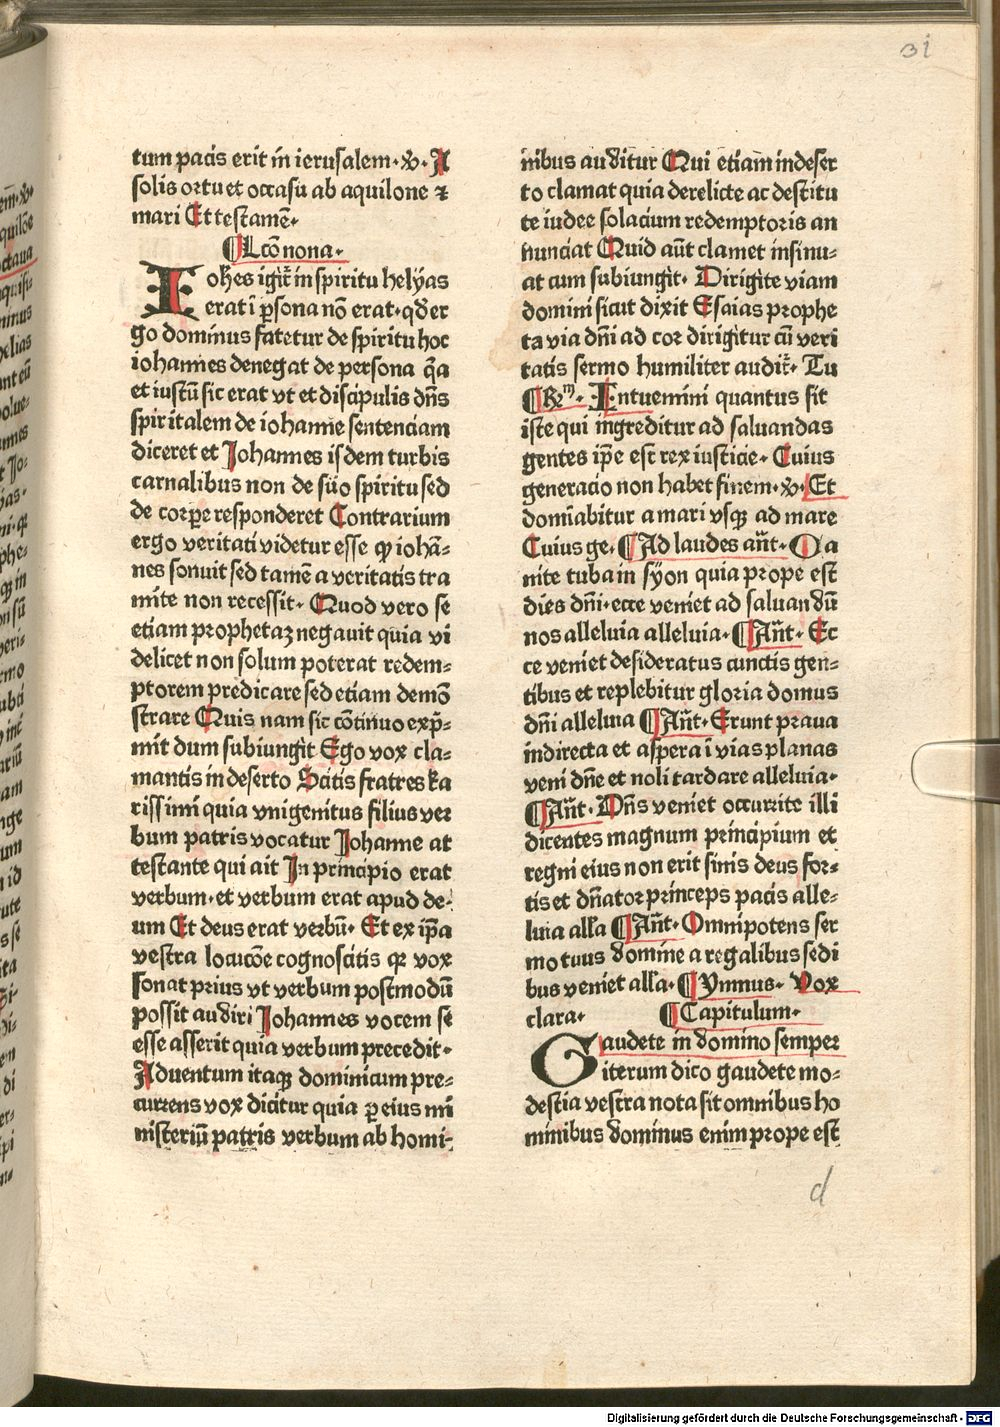 31
tum pacis erit in ierusalem· ℣· A
solis ortu et occasu ab aquilone ⁊
mari Et testamē·
¶Lcō nona·
Iohēs igit᷑ in spiritu helyas
erat ī ꝑsona nō erat· qd er
go dominus fatetur de spiritu hoc
iohannes denegat de persona q̄a
et iustū sic erat vt et discipulis dn̄s
spiritalem de iohanne sentenciam
diceret et Johannes isdem turbis
carnalibus non de suo spiritu sed
de corꝑe responderet Contrarium
ergo veritati videtur esse ꝙ iohā⸗
nes sonuit sed tamē a veritatis tra
mite non recessit· Quod vero se
etiam prophetaꝫ negauit quia vi
delicet non solum poterat redem⸗
ptorem predicare sed etiam demō
strare Quis nam sic cōtinuo exp̄⸗
mit dum subiungit Ego vox cla⸗
mantis in deserto Scitis fratres ka
rissimi quia vnigenitus filius ver
bum patris vocatur Johanne at
testante qui ait In principio erat
verbum· et verbum erat apud de⸗
um Et deus erat verbū· Et ex ip̄a
vestra locucōe cognoscitis qꝛ vox
sonat prius vt verbum postmodū
possit audiri Johannes vocem se
esse asserit quia verbum precedit·
Aduentum itaqꝫ dominicum pre⸗
currens vox dicitur quia ꝑ eius mi
nisteriū patris verbum ab homi⸗
nibus auditur Qui etiam in deser
to clamat quia derelicte ac destitu
te iudee solacium redemptoris an
nunciat Quid aūt clamet insinu⸗
at cum subiungit· Dirigite viam
domini sicut dixit Esaias prophe
ta via dn̄i ad cor dirigitur cū veri
tatis sermo humiliter audit᷑· Tu
¶Rm· Intuemini quantus sit
iste qui ingreditur ad saluandas
gentes ip̄e est rex iusticie· Cuius
generacio non habet finem· ℣· Et
domīabitur a mari vsqꝫ ad mare
Cuius ge· ¶Ad laudes añt· Ca
nite tuba in syon quia prope est
dies dn̄i· ecce veniet ad saluandū
nos alleluia alleluia· ¶Añt· Ec
ce veniet desideratus cunctis gen⸗
tibus et replebitur gloria domus
dn̄i alleluia ¶Añt· Erunt praua
in directa et aspera ī vias planas
veni dn̄e et noli tardare alleluia·
¶Añt· Dn̄s veniet occurrite illi
dicentes magnum principium et
regni eius non erit finis deus for⸗
tis et dn̄ator princeps pacis alle⸗
luia all'a ¶Añt· Omnipotens ser
mo tuus domine a regalibus sedi
bus veniet all'a· ¶Ymnus· Vox
clara· ¶Capitulum·
Gaudete in domino semper
iterum dico gaudete mo⸗
destia vestra nota sit omnibus ho
minibus dominus enim prope est
d
Digitalisierung gefördert durch die Deutsche Forschungsgemeinschaft - DFG